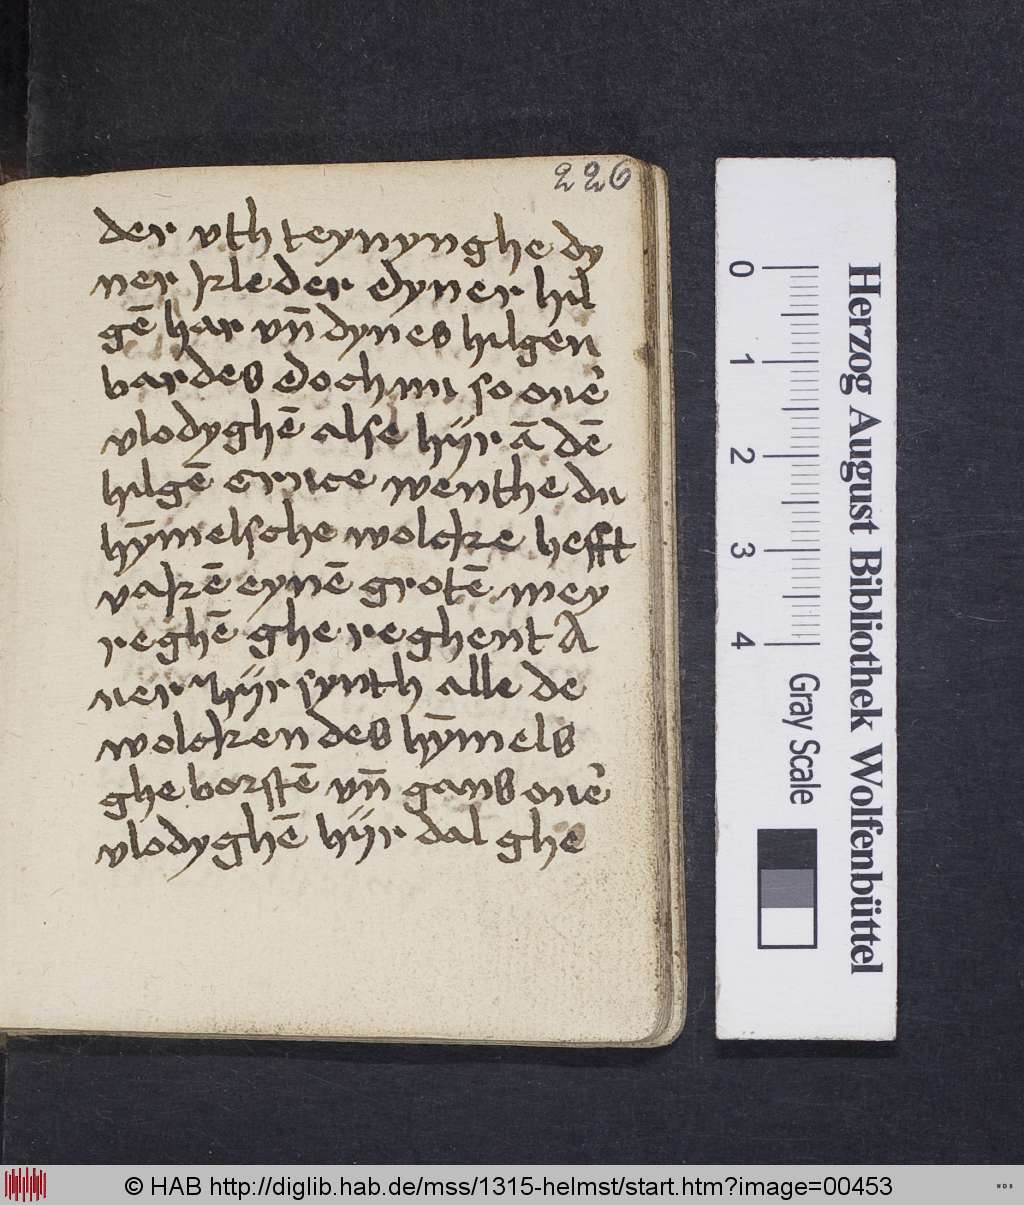 226
der vth teynynghe dy
ner kleder dyner hil
gē har vn̄ dynes hilgen
bardes Doch nu so oue᷑
vlodyghē alse hÿr ā dē
hilgē cruce wenthe du
hȳmelsche wolcke hefft
vakē eynē grotē mey
reghē ghe reghent A
uer hÿr synth alle de
wolcken des hȳmels
ghe borstē vn̄ gans oue᷑
vlodyghē hÿr dal ghe
0
1
2
3
4
Gray Scale
Herzog August Bibliothek Wolfenbüttel
© HAB http://diglib.hab.de/mss/1315-helmst/start.htm?image=00453